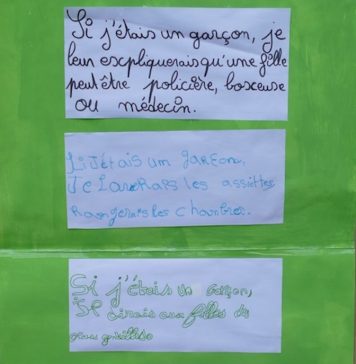 Si j'étais un garçon, je
leur expliquerais qu'une fille
peut être policière, boxeuse
ou médecin.
Si J'étais um garçon,
Je Laverais les assiettes
rangerais les chambres.
Si j'étais un garçon,
Je dirais aux filles de